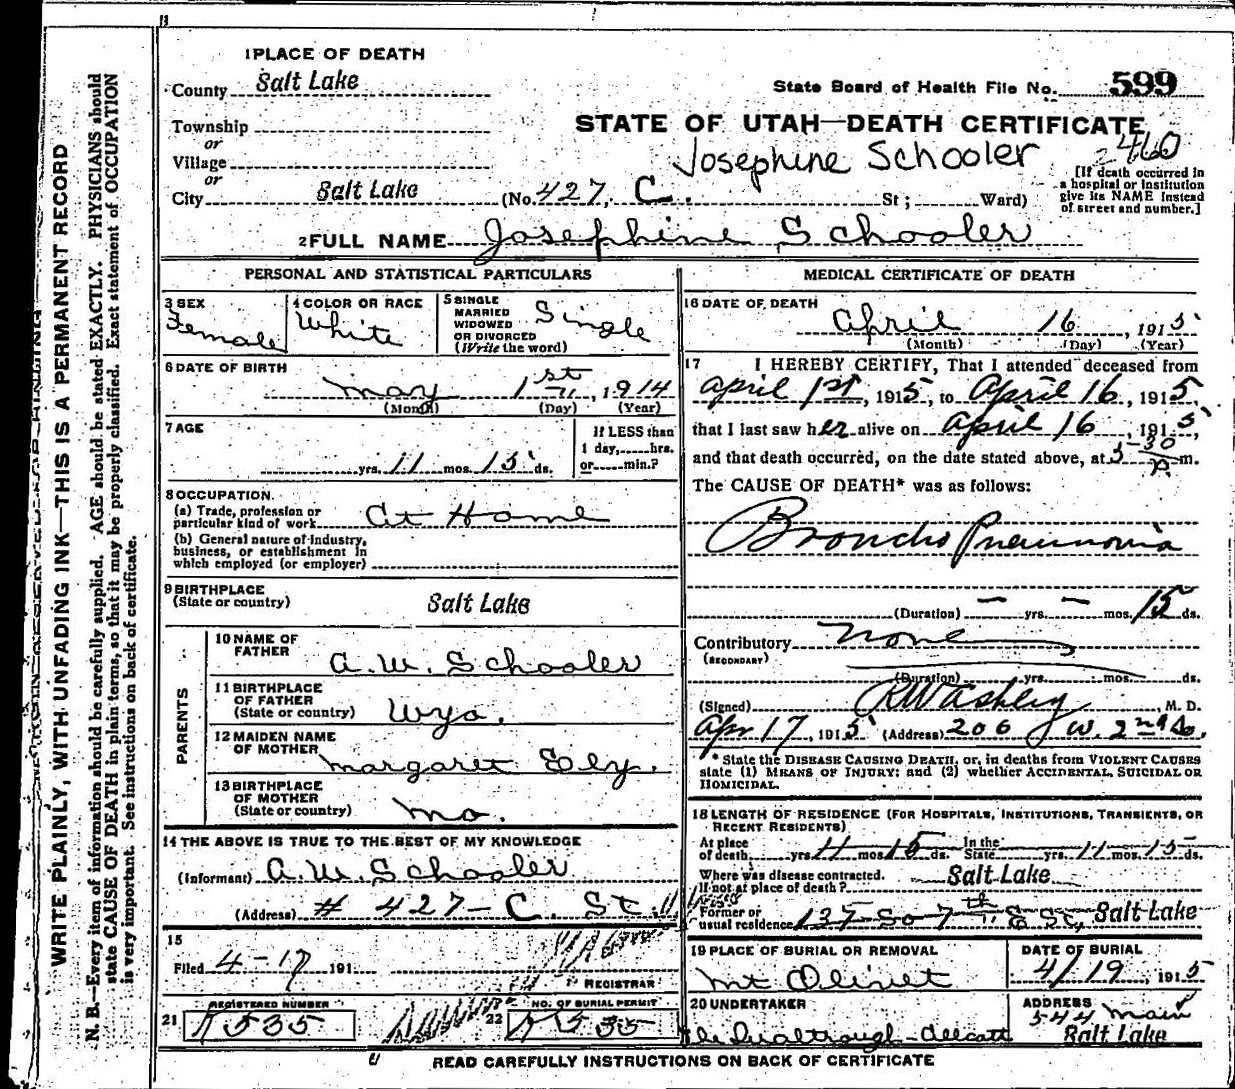 1 PLACE OF DEATH
County Salt Lake
State Board of Health File No. 599
Township
or
Village
or
City Salt Lake
STATE OF UTAH—DEATH CERTIFICATE
Josephine Schooler 2460
(No. 427, C. St; Ward)
[If death occurred in
a hospital or institution
give its NAME instead
of street and number.]
2 FULL NAME Josephine Schooler
PERSONAL AND STATISTICAL PARTICULARS
3 SEX
Female
4 COLOR OR RACE
White
5 SINGLE
MARRIED
WIDOWED
OR DIVORCED
(Write the word)
Single
6 DATE OF BIRTH
May 1st, 1914
(Month) (Day) (Year)
7 AGE
yrs. 11 mos. 15 ds.
If LESS than
1 day, hrs.
or min.?
8 OCCUPATION.
(a) Trade, profession or
particular kind of work At Home
(b) General nature of industry,
business, or establishment in
which employed (or employer)
9 BIRTHPLACE
(State or country) Salt Lake
PARENTS
10 NAME OF
FATHER A. W. Schooler
11 BIRTHPLACE
OF FATHER
(State or country) Wyo.
12 MAIDEN NAME
OF MOTHER Margaret Ely.
13 BIRTHPLACE
OF MOTHER
(State or country) Mo.
14 THE ABOVE IS TRUE TO THE BEST OF MY KNOWLEDGE
(Informant) A. W. Schooler
(Address) # 427 - C. St.
15
Filed 4-17 191
REGISTRAR
REGISTERED NUMBER
21 K535
NO. OF BURIAL PERMIT
22 K535
MEDICAL CERTIFICATE OF DEATH
16 DATE OF DEATH
April 16, 1915
(Month) (Day) (Year)
17 I HEREBY CERTIFY, That I attended deceased from
April 1st, 1915, to April 16, 1915,
that I last saw her alive on April 16, 1915,
and that death occurred, on the date stated above, at 5-30 P. m.
The CAUSE OF DEATH* was as follows:
Broncho Pneumonia
(Duration) — yrs. — mos. 15 ds.
Contributory None
(SECONDARY)
(Duration) yrs. mos. ds.
(Signed) , M. D.
Apr 17, 1915 (Address) 206 W. 2nd So.
* State the DISEASE CAUSING DEATH, or, in deaths from VIOLENT CAUSES
state (1) MEANS OF INJURY; and (2) whether ACCIDENTAL, SUICIDAL OR
HOMICIDAL.
18 LENGTH OF RESIDENCE (FOR HOSPITALS, INSTITUTIONS, TRANSIENTS, OR
RECENT RESIDENTS)
At place
of death yrs 11 mos 15 ds. In the
State yrs. 11 mos. 15 ds.
Where was disease contracted.
If not at place of death? Salt Lake
Former or
usual residence 135 So 7th E St, Salt Lake
19 PLACE OF BURIAL OR REMOVAL
Mt Olivet
DATE OF BURIAL
4/19, 1915
20 UNDERTAKER
ADDRESS
544 Main
Salt Lake
READ CAREFULLY INSTRUCTIONS ON BACK OF CERTIFICATE
WRITE PLAINLY, WITH UNFADING INK—THIS IS A PERMANENT RECORD
N. B.—Every item of information should be carefully supplied. AGE should be stated EXACTLY. PHYSICIANS should
state CAUSE OF DEATH in plain terms, so that it may be properly classified. Exact statement of OCCUPATION
is very important. See instructions on back of certificate.